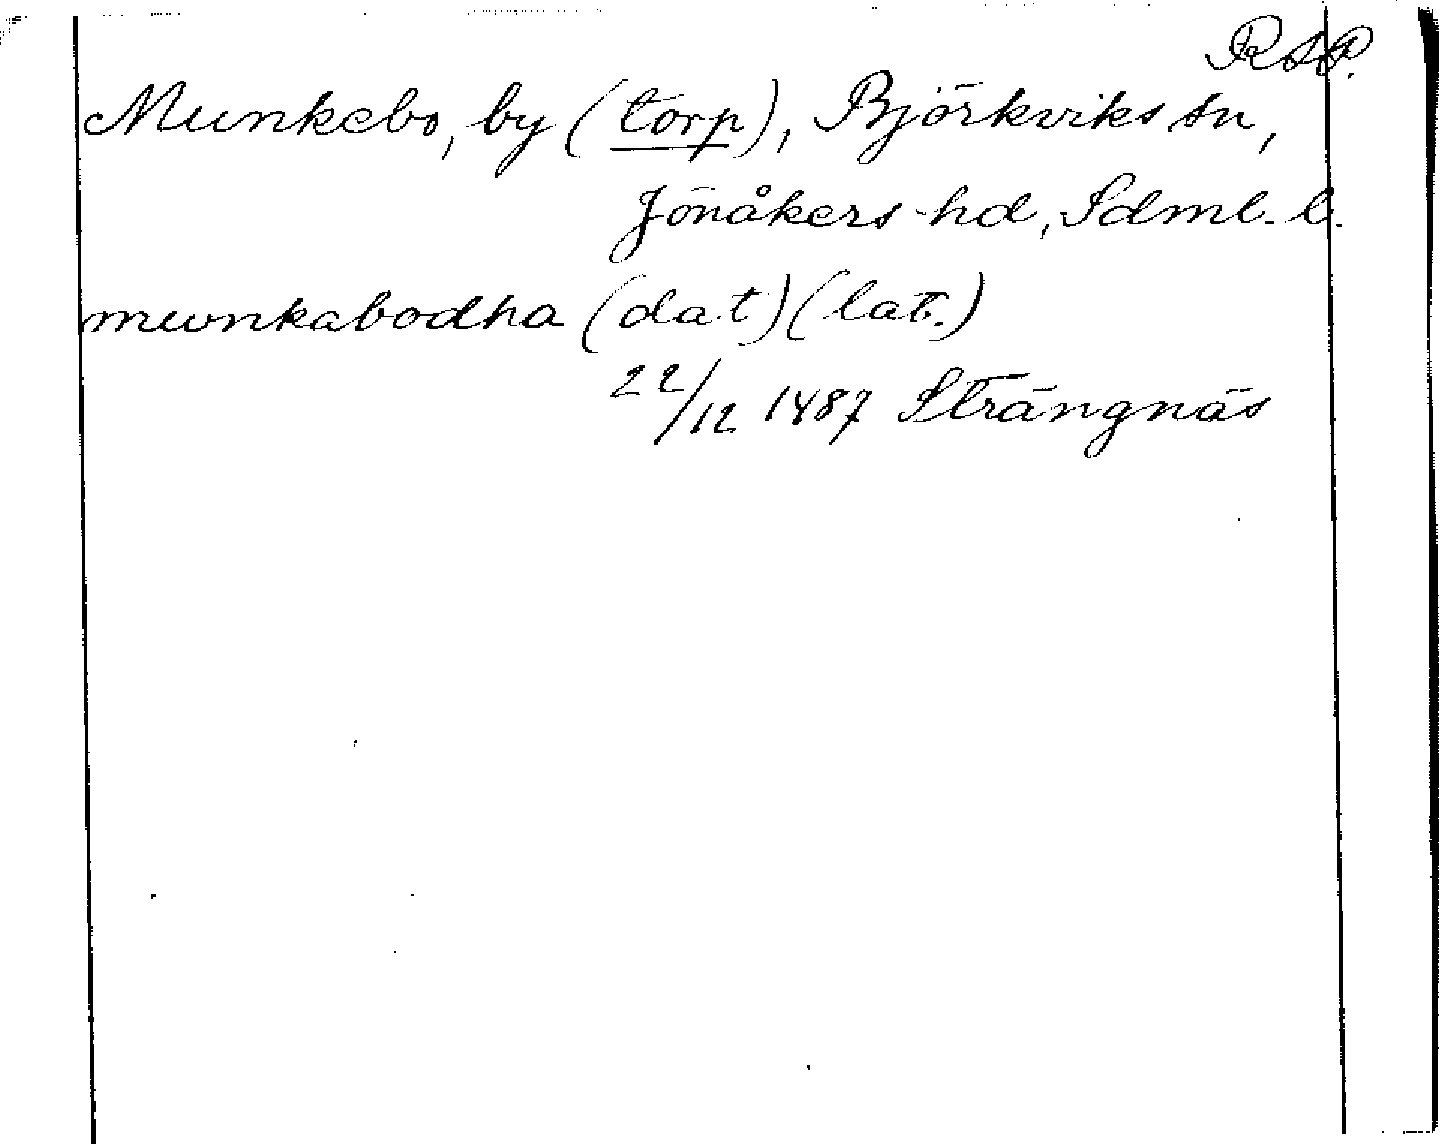 RAP.
Munkebo, by (torp), Björkviks sn,
Jönåkers hd, Sdml. l.
munkabodha (dat) (lat.)
22/12 1487 Strängnäs